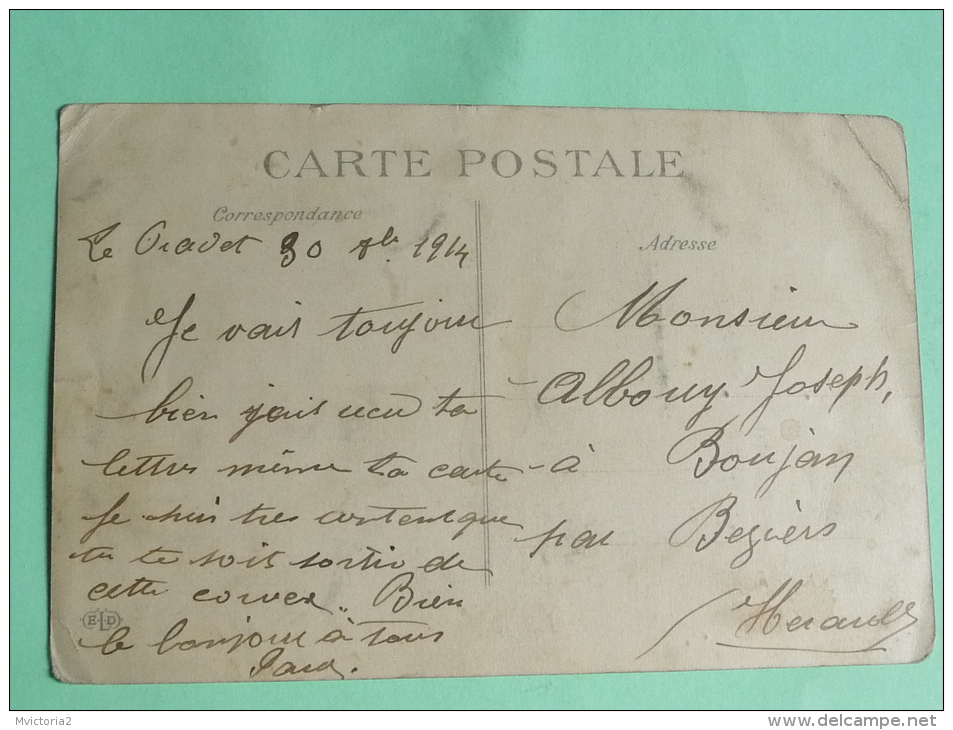 CARTE POSTALE
Correspondance
Le Cravet 30 8bre 1914
Je vais toujour
bien j'ais recu ta
lettres même ta carte
je suis tres content que
tu te soit sortie de
cette corvex.. Bien
le bonjour à tous
ELD
Adresse
Monsieur
Albouy Joseph,
à Boujan
par Beziers
Herault
Mvictoria2
www.delcampe.net